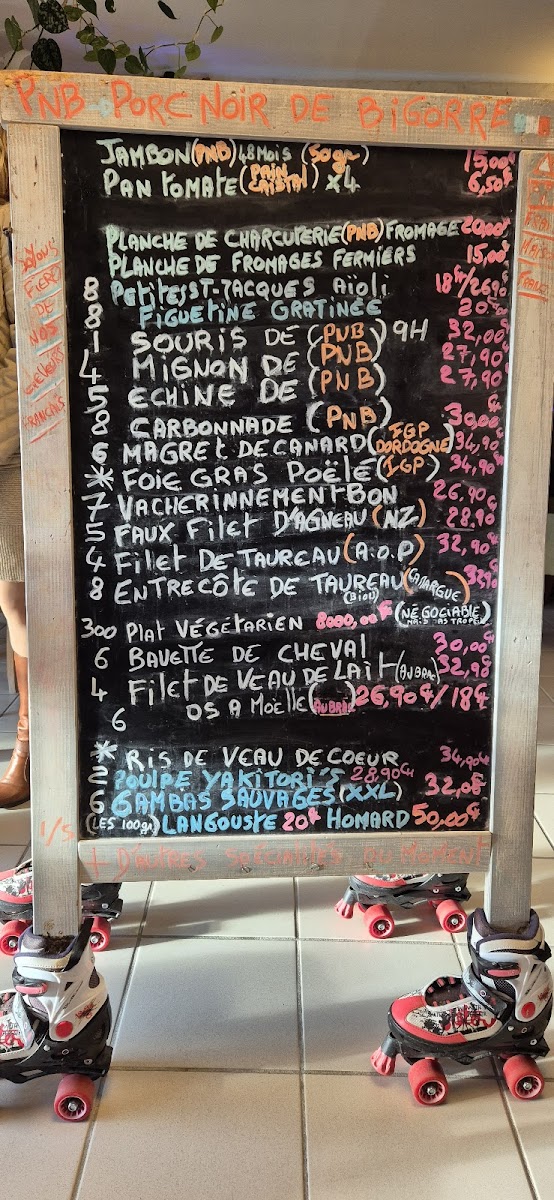 PNB PORC NOIR DE BIGORRE
JAMBON (PNB) 48 MOIS (50gr) 15,00€
PAN TOMATE (PAIN CRISTAL) x4 6,50€
PLANCHE DE CHARCUTERIE (PNB) FROMAGE 20,00€
PLANCHE DE FROMAGES FERMIERS 15,00€
8 Petites ST-JACQUES AÏOLI 18€/26,90€
8 FIGUETINE GRATINÉE
1 SOURIS DE (PNB) 9H 32,00€
4 MIGNON DE (PNB) 27,90€
5 ECHINE DE (PNB) 27,90€
8 CARBONNADE (PNB) 30,00€
6 MAGRET DE CANARD (IGP DORDOGNE) 34,90€
* FOIE GRAS POËLÉ (IGP) 34,90€
7 VACHERINNEMENT BON 26,90€
5 FAUX FILET D'AGNEAU (NZ) 28,90
4 FILET DE TAUREAU (A.O.P) 32,90€
8 ENTRECÔTE DE TAUREAU (CAMARGUE)
(BIOU)
300 PLAT VÉGÉTARIEN 8000,00€ (NÉGOCIABLE
MAIS PAS TROP)
6 BAVETTE DE CHEVAL 30,00€
4 FILET DE VEAU DE LAIT (AUBRAC) 32,98€
6 OS A MOËLLE (AUBRAC) 26,90€/18€
* RIS DE VEAU DE COEUR 34,90€
2 POULPE YAKITORI'S 28,90€
6 GAMBAS SAUVAGES (XXL) 32,00€
(LES 100gr) LANGOUSTE 20€ HOMARD 50,00€
+ D'AUTRES SPÉCIALITÉS DU MOMENT
NOUS
FIERS
DE
NOS
FRANÇAIS
1/5